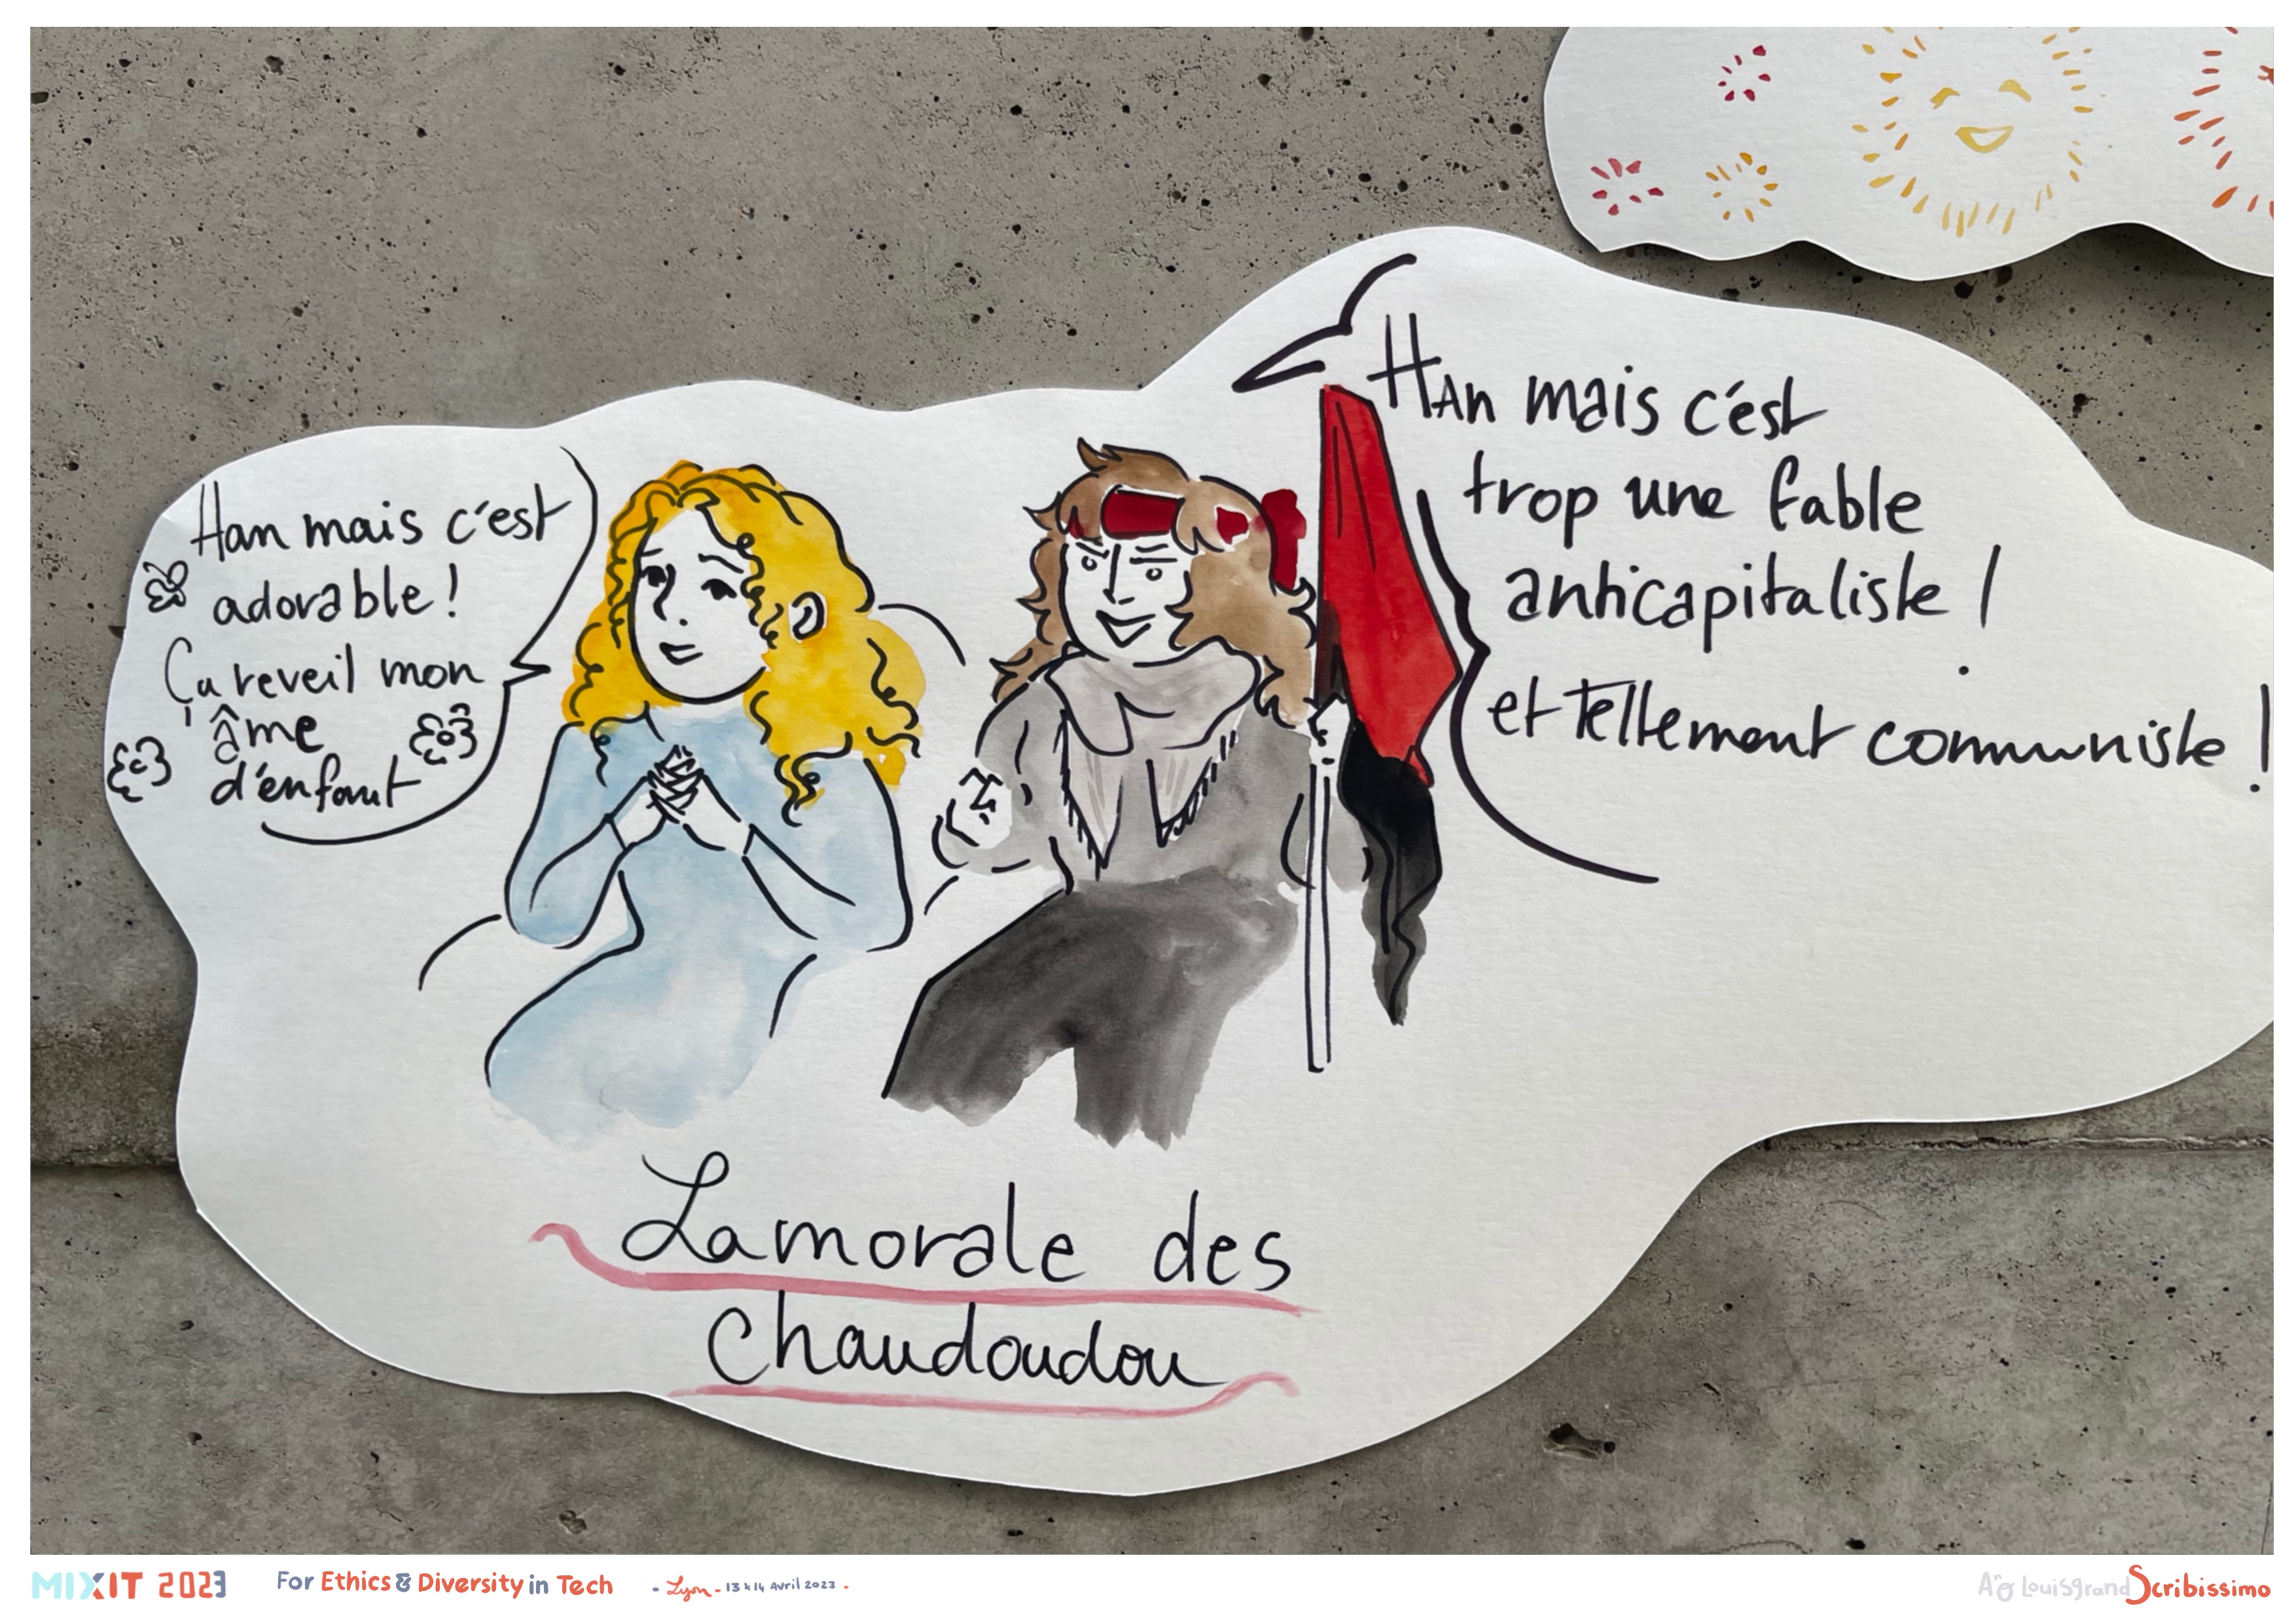 Han mais c'est
adorable !
Ça reveil mon
âme
d'enfant
HAn mais c'est
trop une fable
anticapitaliste !
et Tellement communiste !
La morale des
Chaudoudou
MIXIT 2023
For Ethics & Diversity in Tech
- Lyon - 13 & 14 Avril 2023 -
Louisgrand Scribissimo